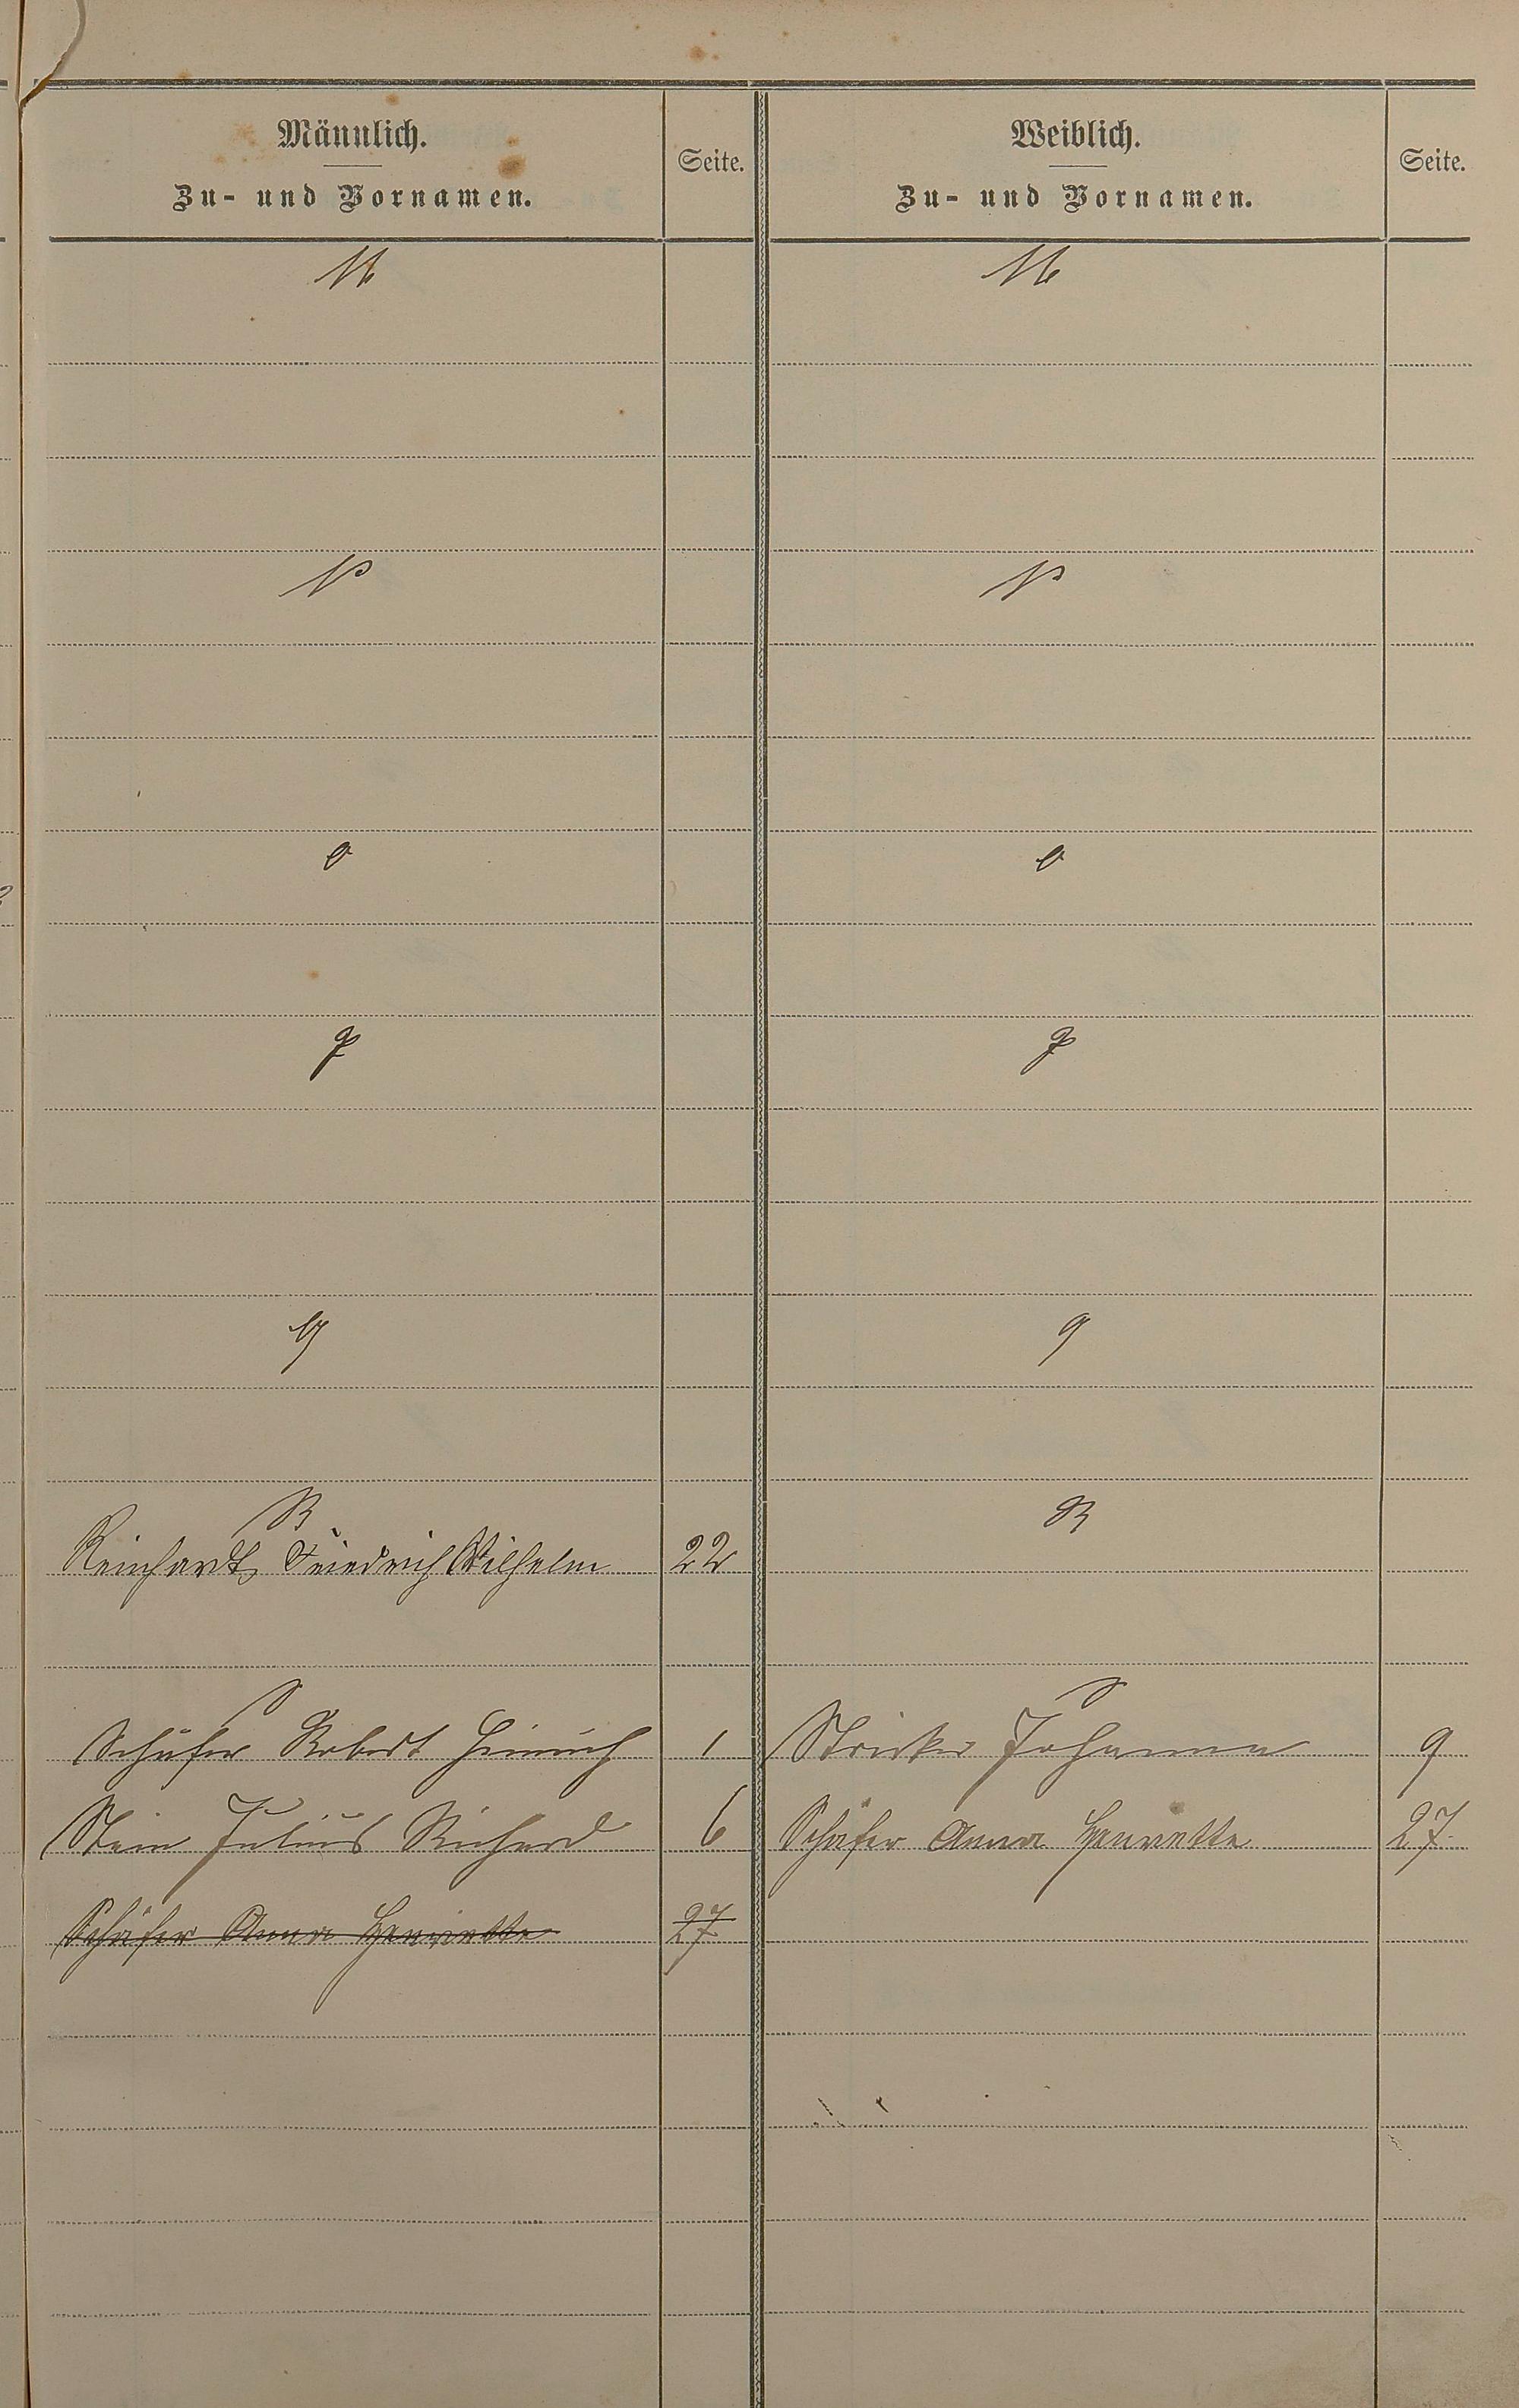 Männlich.
Zu- und Vornamen.
Seite.
Weiblich.
Zu- und Vornamen.
Seite.
M
M
N
N
O
O
P
P
Q
Q
R
R
Reinhardt, Friedrich Wilhelm 22
S
S
Schäfer Robert Heinrich 1
Stricker Johanna 9
Stein Julius Richard 6
Schäfer Anna Henriette 27.
Schäfer Anna Henriette 27